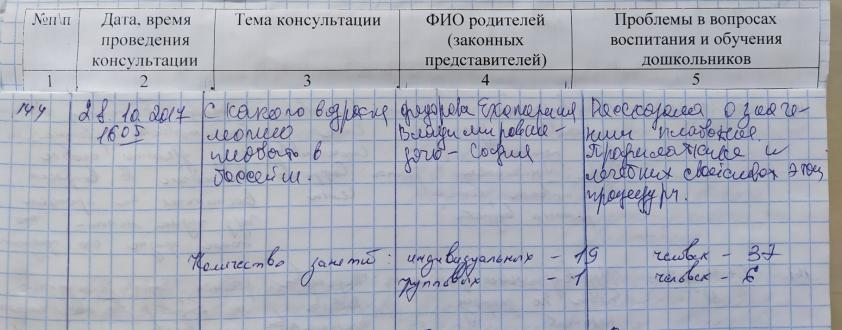 №п\п
Дата, время
проведения
консультации
Тема консультации
ФИО родителей
(законных
представителей)
Проблемы в вопросах
воспитания и обучения
дошкольников
1 2 3 4 5
144
28. 10 2017
16 05
С какого возраста
можно
плавать в
бассейн.
Федорова Екатерина
Владимировна -
дочь - София
Рассказала о значе-
нии плавания.
Профилактике и
лечебных свойствах этой
процедуры.
Количество занятий: индивидуальных - 19 человек - 37
групповых - 1 человек - 6